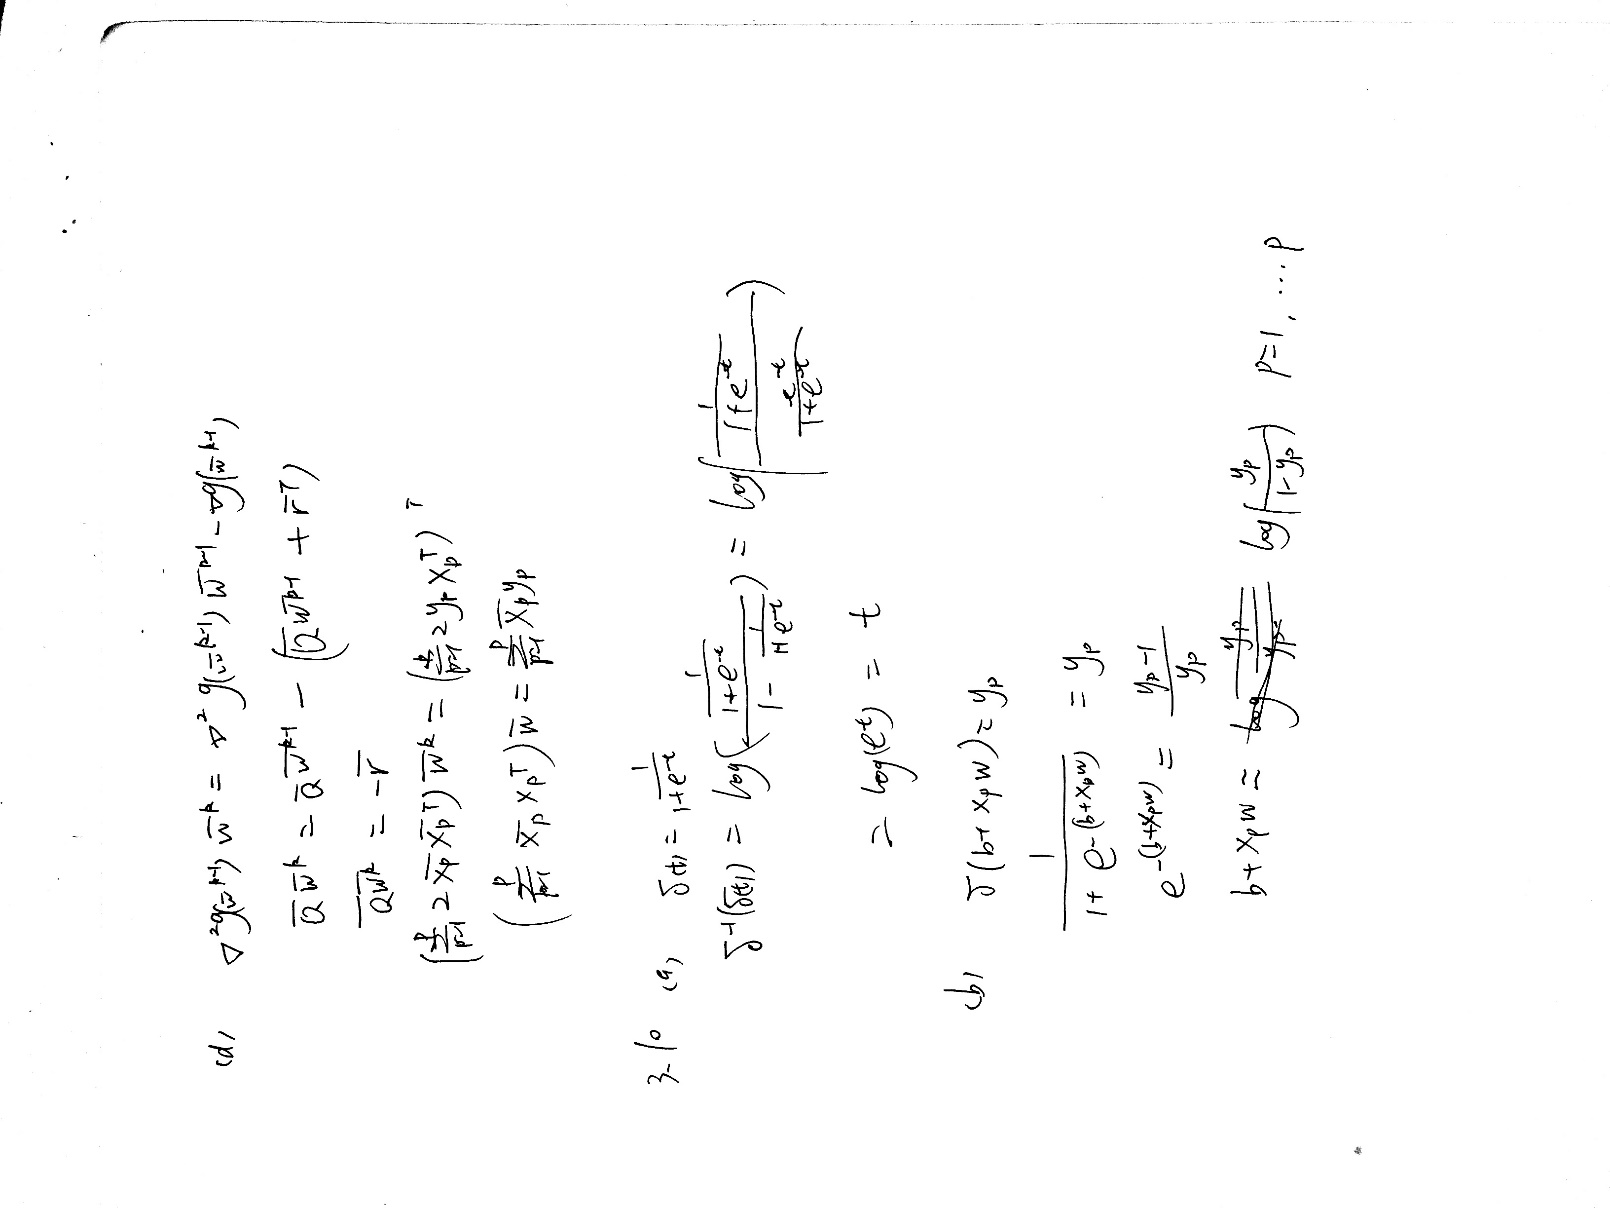 (d) ∇²g(w̄^{k-1}) w̄^k = ∇²g(w̄^{k-1}) w̄^{k-1} - ∇g(w̄^{k-1})
Q̄w̄^k = Q̄w̄^{k-1} - (Q̄w̄^{k-1} + r̄^T)
Q̄w̄^k = -r̄
(∑_{p=1}^{P} 2 x̄_p x̄_p^T) w̄^k = (∑_{p=1}^{P} 2 y_p x̄_p^T)^T
(∑_{p=1}^{P} x̄_p x̄_p^T) w̄ = ∑_{p=1}^{P} x̄_p y_p
3-10 (a) σ(t) = 1/(1+e^{-t})
σ^{-1}(σ(t)) = log( (1/(1+e^{-t})) / (1 - 1/(1+e^{-t})) ) = log( (1/(1+e^{-t})) / (e^{-t}/(1+e^{-t})) )
= log(e^t) = t
(b) σ(b + x_p w) = y_p
1/(1+e^{-(b+x_p w)}) = y_p
e^{-(b+x_p w)} = (y_p-1)/y_p
b + x_p w = log( y_p/(1-y_p) ) p=1, ....P